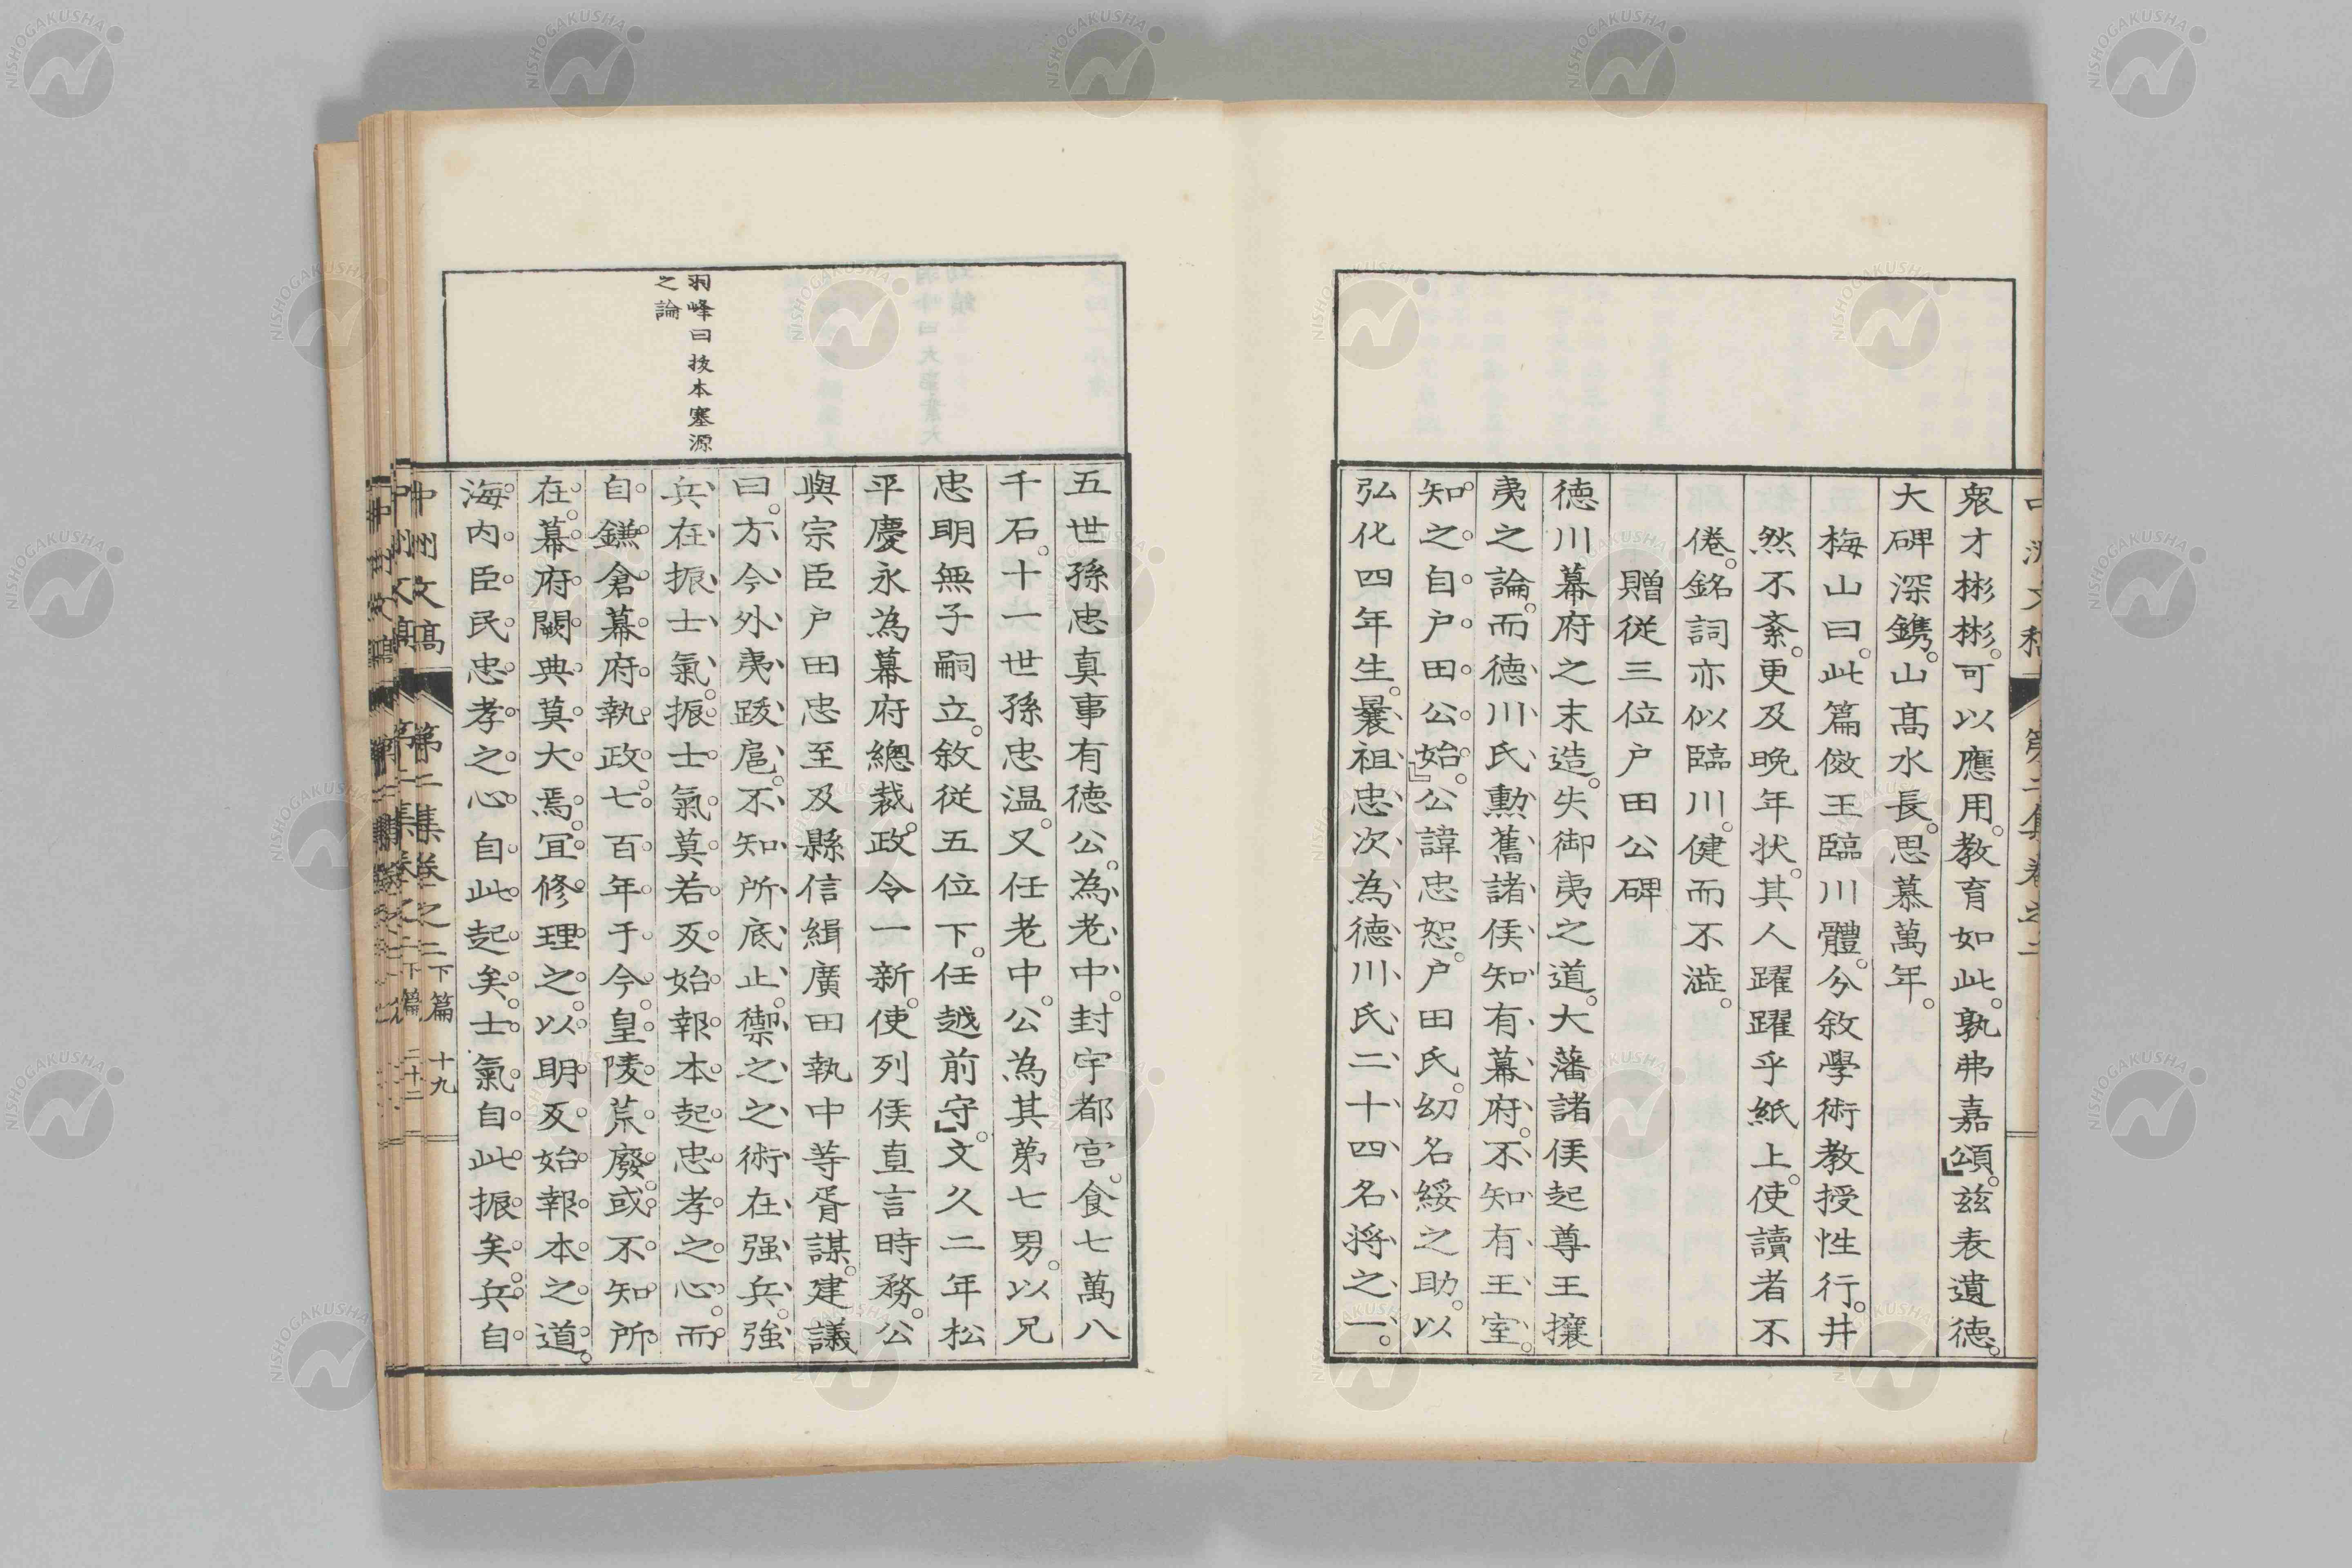 衆才彬彬。可以應用。教育如此。孰弗嘉頌。』茲表遺德。
大碑深鐫。山高水長。思慕萬年。
梅山曰。此篇傚王臨川體。分敘學術教授性行。井
然不紊。更及晚年状。其人躍躍乎紙上。使讀者不
倦。銘詞亦似臨川。健而不澁。
贈從三位戸田公碑
德川幕府之末造。失御夷之道。大藩諸侯起尊王攘
夷之論。而德川氏勳舊諸侯知有幕府。不知有王室。
知之自戸田公始。』公諱忠恕。戸田氏。幼名綏之助。以
弘化四年生。曩祖忠次為德川氏二十四名將之一。
羽峰曰拔本塞源
之論
五世孫忠真事有德公。為老中。封宇都宮。食七萬八
千石。十一世孫忠温。又任老中。公為其第七男。以兄
忠明無子嗣立。敘從五位下。任越前守。』文久二年松
平慶永為幕府總裁。政令一新。使列侯直言時務。公
與宗臣戸田忠至及縣信緝廣田執中等胥謀。建議
曰。方今外夷跋扈。不知所底止。禦之之術在强兵。強
兵在振士氣。振士氣莫若反始報本起忠孝之心。而
自鎌倉幕府執政。七百年于今。皇陵荒廢。或不知所
在。幕府闕典莫大焉。宜修理之。以明反始報本之道。
海内臣民忠孝之心自此起矣。士氣自此振矣。兵自
中州文高 第二集卷之二下篇 十九